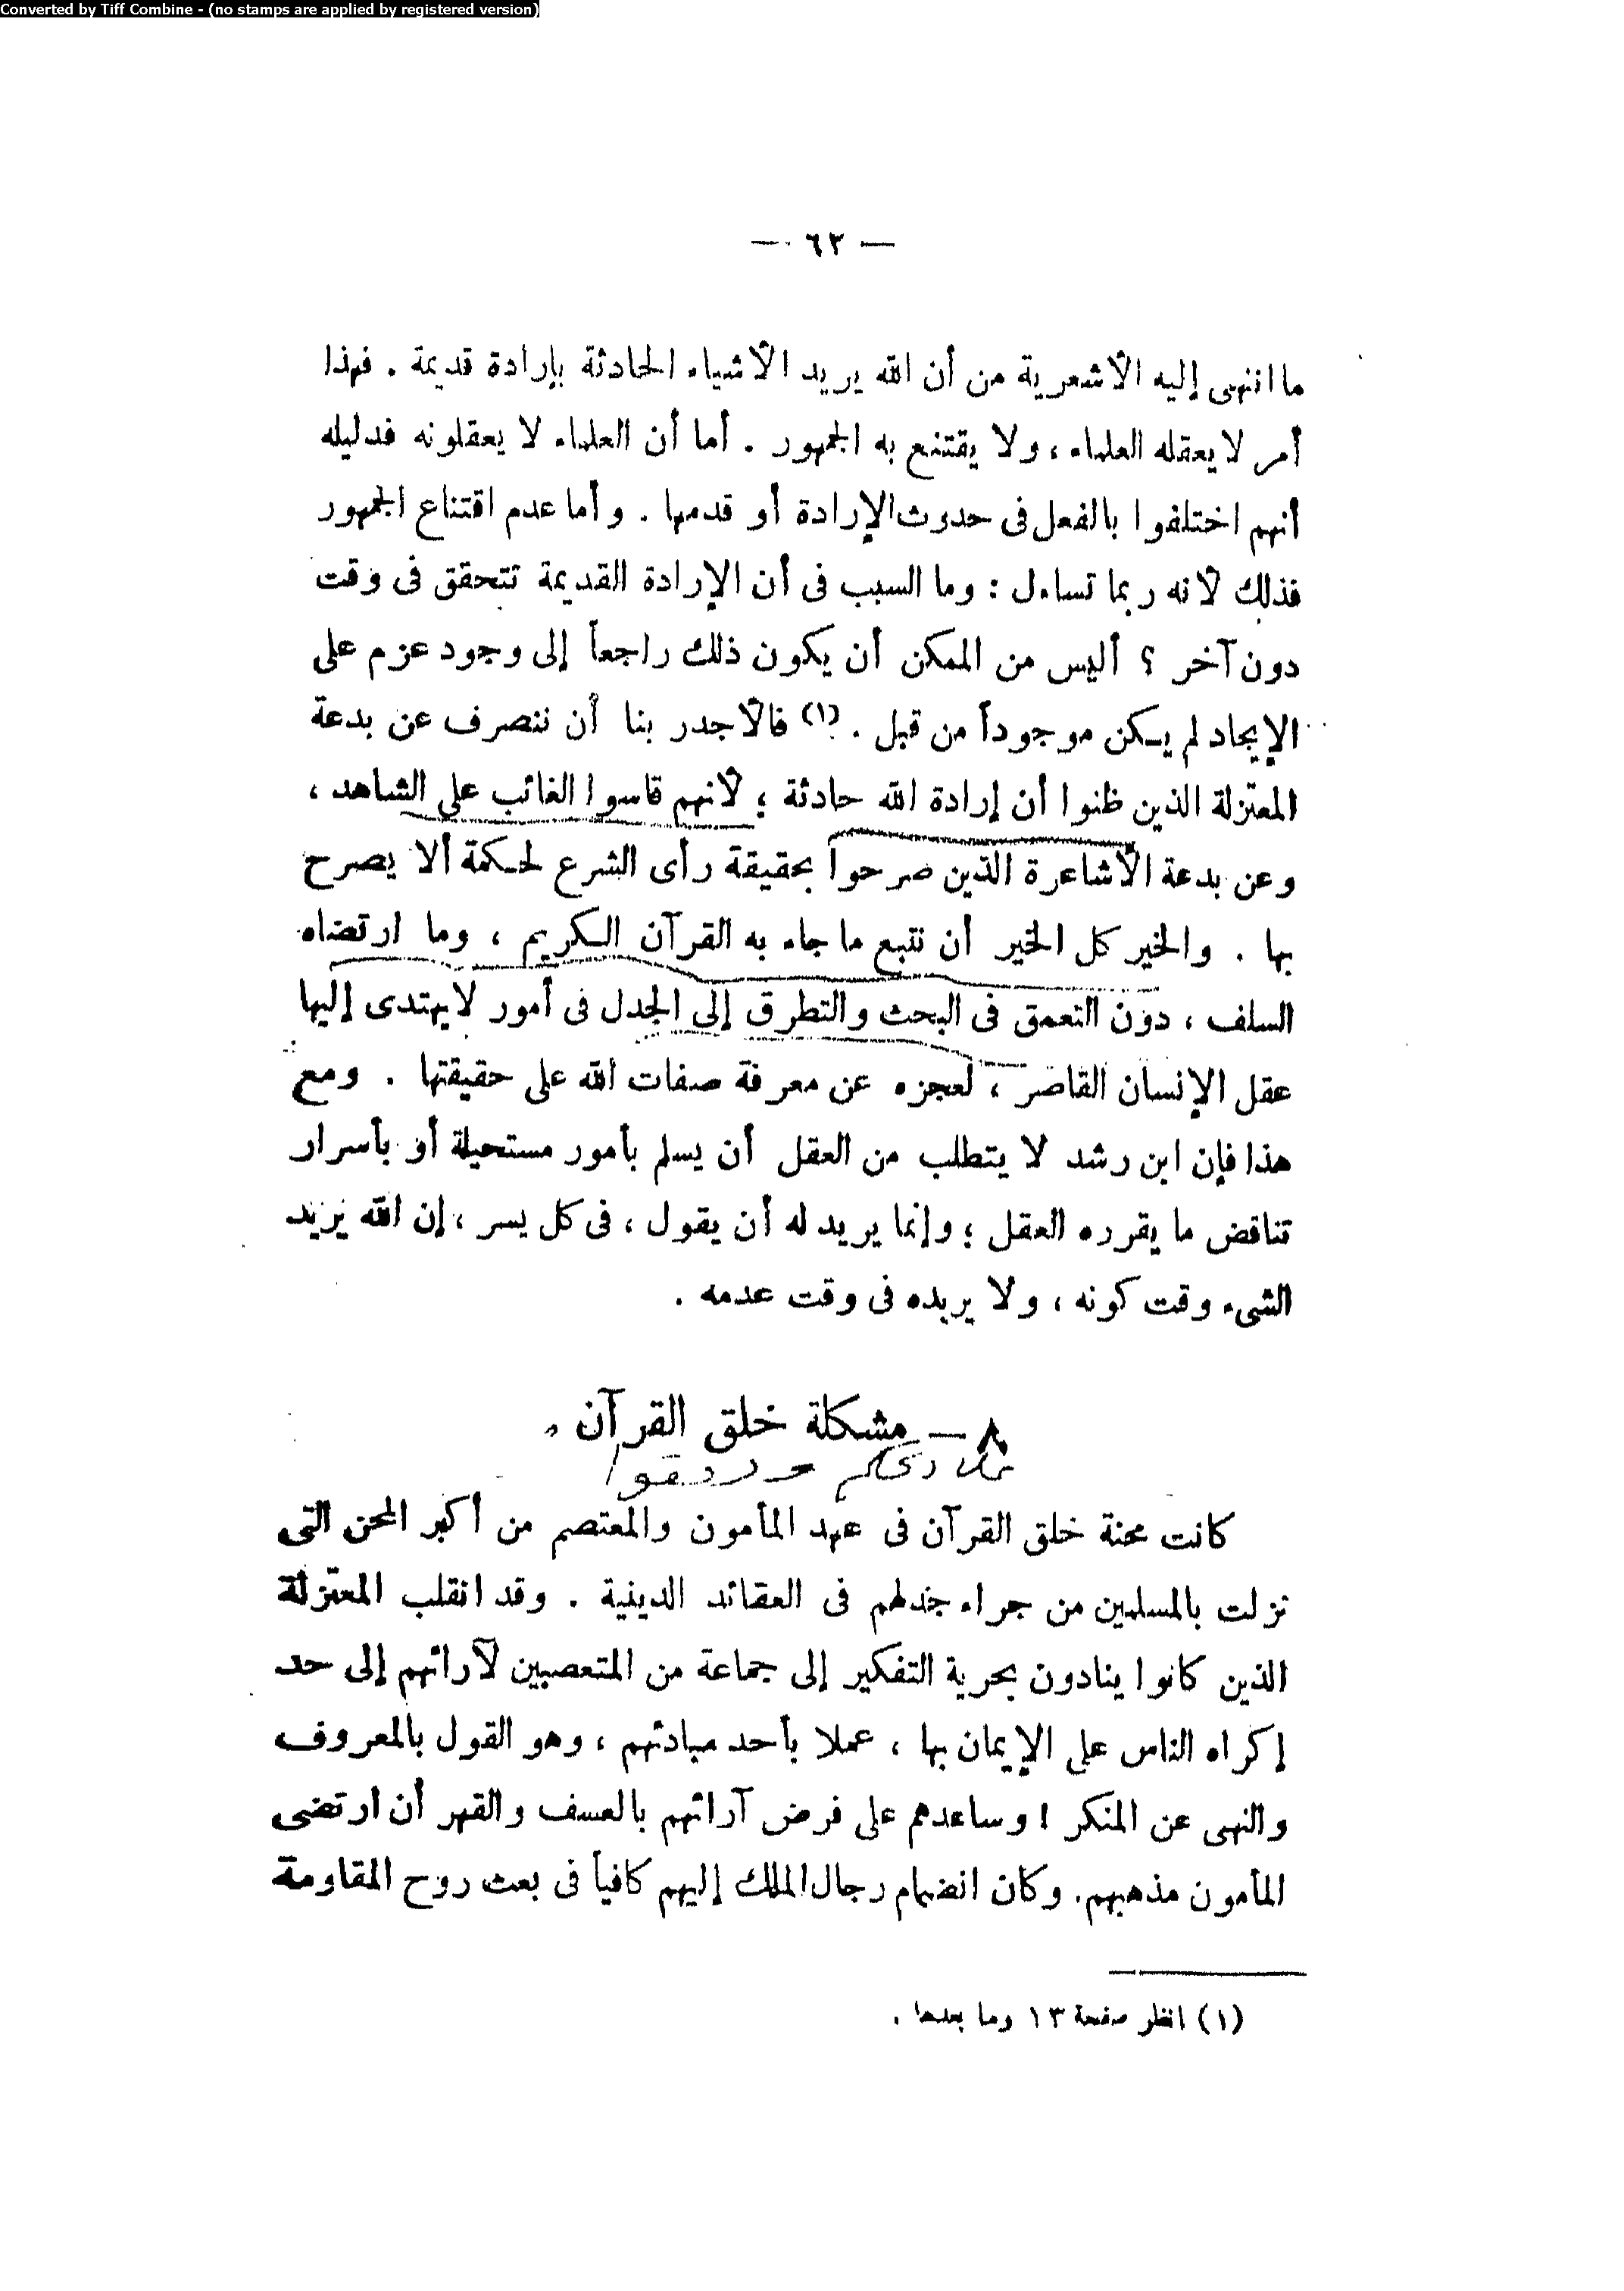 Converted by Tiff Combine - (no stamps are applied by registered version)
— ٦٣ —
ما انتهى إليه الأشعرية من أن الله يريد الأشياء الحادثة بإرادة قديمة . فهذا
أمر لا يعقله العلماء ، ولا يقتنع به الجمهور . أما أن العلماء لا يعقلونه فدليله
أنهم اختلفوا بالفعل فى حدوث الإرادة أو قدمها . وأما عدم اقتناع الجمهور
فذلك لأنه ربما تساءل : وما السبب فى أن الإرادة القديمة تتحقق فى وقت
دون آخر ؟ أليس من الممكن أن يكون ذلك راجعاً إلى وجود عزم على
الإيجاد لم يكن موجوداً من قبل . (١) فالأجدر بنا أن ننصرف عن بدعة
المعتزلة الذين ظنوا أن إرادة الله حادثة ؛ لأنهم قاسوا الغائب على الشاهد ،
وعن بدعة الأشاعرة الذين صرحوا بحقيقة رأى الشرع لحكمة ألا يصرح
بها . والخير كل الخير أن نتبع ما جاء به القرآن الكريم ، وما ارتضاه
السلف ، دون التعمق فى البحث والتطرق إلى الجدل فى أمور لا يهتدى إليها
عقل الإنسان القاصر ، لعجزه عن معرفة صفات الله على حقيقتها . ومع
هذا فإن ابن رشد لا يتطلب من العقل أن يسلم بأمور مستحيلة أو بأسرار
تناقض ما يقرره العقل ؛ وإنما يريد له أن يقول ، فى كل يسر ، إن الله يريد
الشىء وقت كونه ، ولا يريده فى وقت عدمه .
٨ — مشكلة خلق القرآن
كانت محنة خلق القرآن فى عهد المأمون والمعتصم من أكبر المحن التى
نزلت بالمسلمين من جراء جدلهم فى العقائد الدينية . وقد انقلب المعتزلة
الذين كانوا ينادون بحرية التفكير إلى جماعة من المتعصبين لآرائهم إلى حد
إكراه الناس على الإيمان بها ، عملا بأحد مبادئهم ، وهو القول بالمعروف
والنهى عن المنكر ! وساعدهم على فرض آرائهم بالعسف والقهر أن ارتضى
المأمون مذهبهم. وكان انضمام رجال الملك إليهم كافياً فى بعث روح المقاومة
(١) انظر صفحة ١٣ وما بعدها .